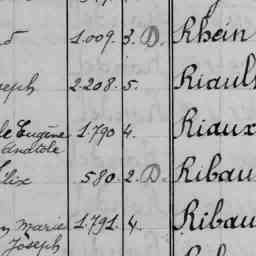 1.009. 3. D. Rhein
seph 2.208. 5. Riaul
le Eugène 1.790 4. Riaux
Anatole
lix 580. 2. D. Ribau
Marie 1.791. 4. Ribau
Joseph